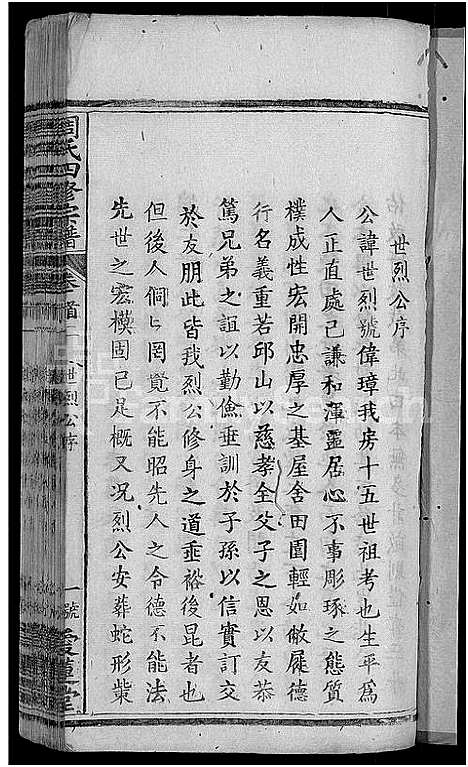 世烈公序
公諱世烈號偉璋我房十五世祖考也生平為
人正直處己謙和渾靈居心不事彫琢之態質
樸成性宏開忠厚之基屋舍田園輕如敝屣德
行名義重若邱山以慈孝全父子之恩以友恭
篤兄弟之誼以勤儉垂訓於子孫以信實訂交
於友朋此皆我烈公修身之道垂裕後昆者也
但後人侗々罔覺不能昭先人之令德不能法
先世之宏模固已足概又況烈公安葬蛇形柴
周氏四修宗譜
卷首
世烈公序
一號
愛蓮堂